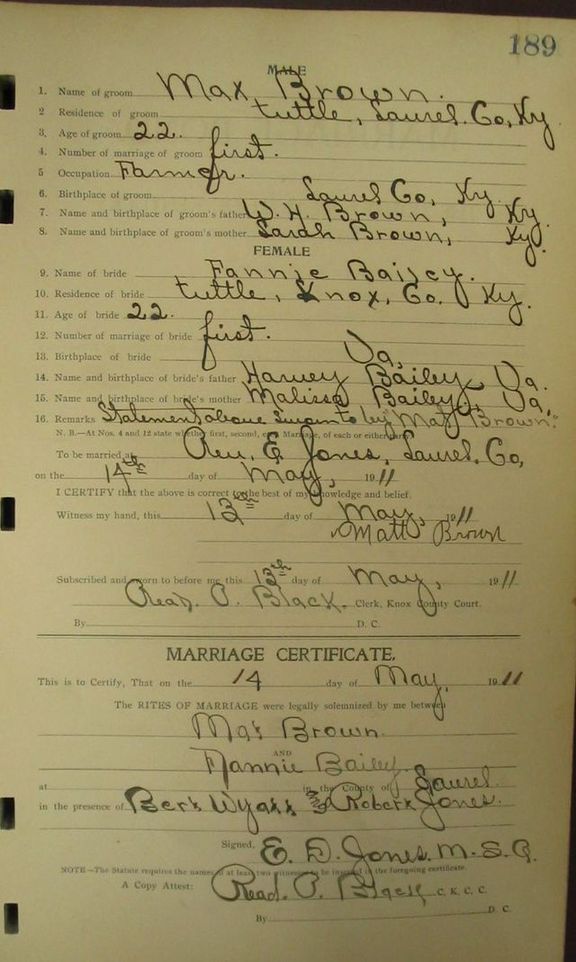 189
MALE
1. Name of groom Mat Brown.
2 Residence of groom tuttle, Laurel. Co, Ky
3. Age of groom 22.
4. Number of marriage of groom first.
5 Occupation Farmer.
6. Birthplace of groom Laurel Co, Ky.
7. Name and birthplace of groom's father W. H. Brown, Ky.
8. Name and birthplace of groom's mother Sarah Brown, Ky.
FEMALE
9. Name of bride Fannie Bailey.
10. Residence of bride tuttle, Knox, Co. Ky.
11. Age of bride 22.
12. Number of marriage of bride first.
13. Birthplace of bride Va.
14. Name and birthplace of bride's father Harvey Bailey Va.
15. Name and birthplace of bride's mother Malissa Bailey, Va.
16. Remarks Statements above Sworn to by "Mat Brown."
N. B.—At Nos. 4 and 12 state whether first, second, etc. Marriage, of each or either party.
To be married at Rev. E Jones, Laurel. Co,
on the 14th day of May, 1911
I CERTIFY that the above is correct to the best of my knowledge and belief.
Witness my hand, this 13th day of May, 1911
Matt Brown
Subscribed and sworn to before me this 13th day of May, 1911
Read. P. Black. Clerk, Knox County Court.
By D. C.
MARRIAGE CERTIFICATE.
This is to Certify, That on the 14 day of May, 1911
The RITES OF MARRIAGE were legally solemnized by me between
Mat Brown.
AND
Fannie Bailey.
at in the County of Laurel
in the presence of Bert Wyatt & Robert Jones.
Signed, E. D. Jones. M. S. G.
NOTE—The Statute requires the names of at least two witnesses to be inserted in the foregoing certificate.
A Copy Attest: Read. P. Black C. K. C. C.
By D. C.